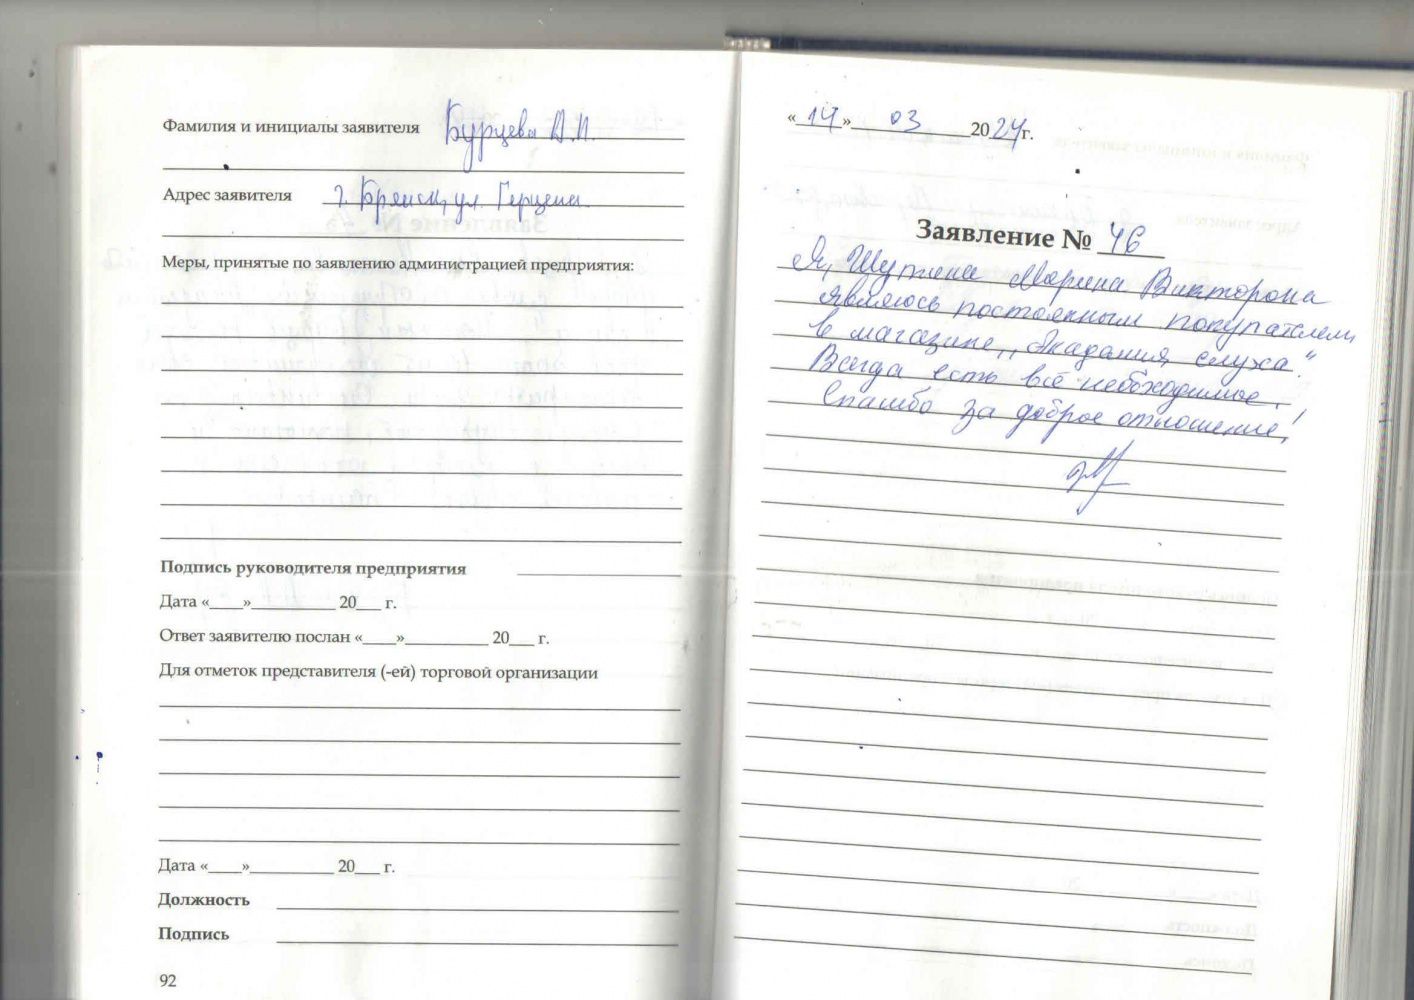 Фамилия и инициалы заявителя Бурцева А.И.
Адрес заявителя г. Брянск, ул. Герцена.
Меры, принятые по заявлению администрацией предприятия:
Подпись руководителя предприятия
Дата «____»__________ 20___ г.
Ответ заявителю послан «____»__________ 20___ г.
Для отметок представителя (-ей) торговой организации
Дата «____»__________ 20___ г.
Должность
Подпись
92
«14» 03 2024 г.
Заявление № 46
Я, Марина Викторона
являюсь постоянным покупателем
в магазине „Академия слуха“.
Всегда есть всё необходимое.
Спасибо за доброе отношение!